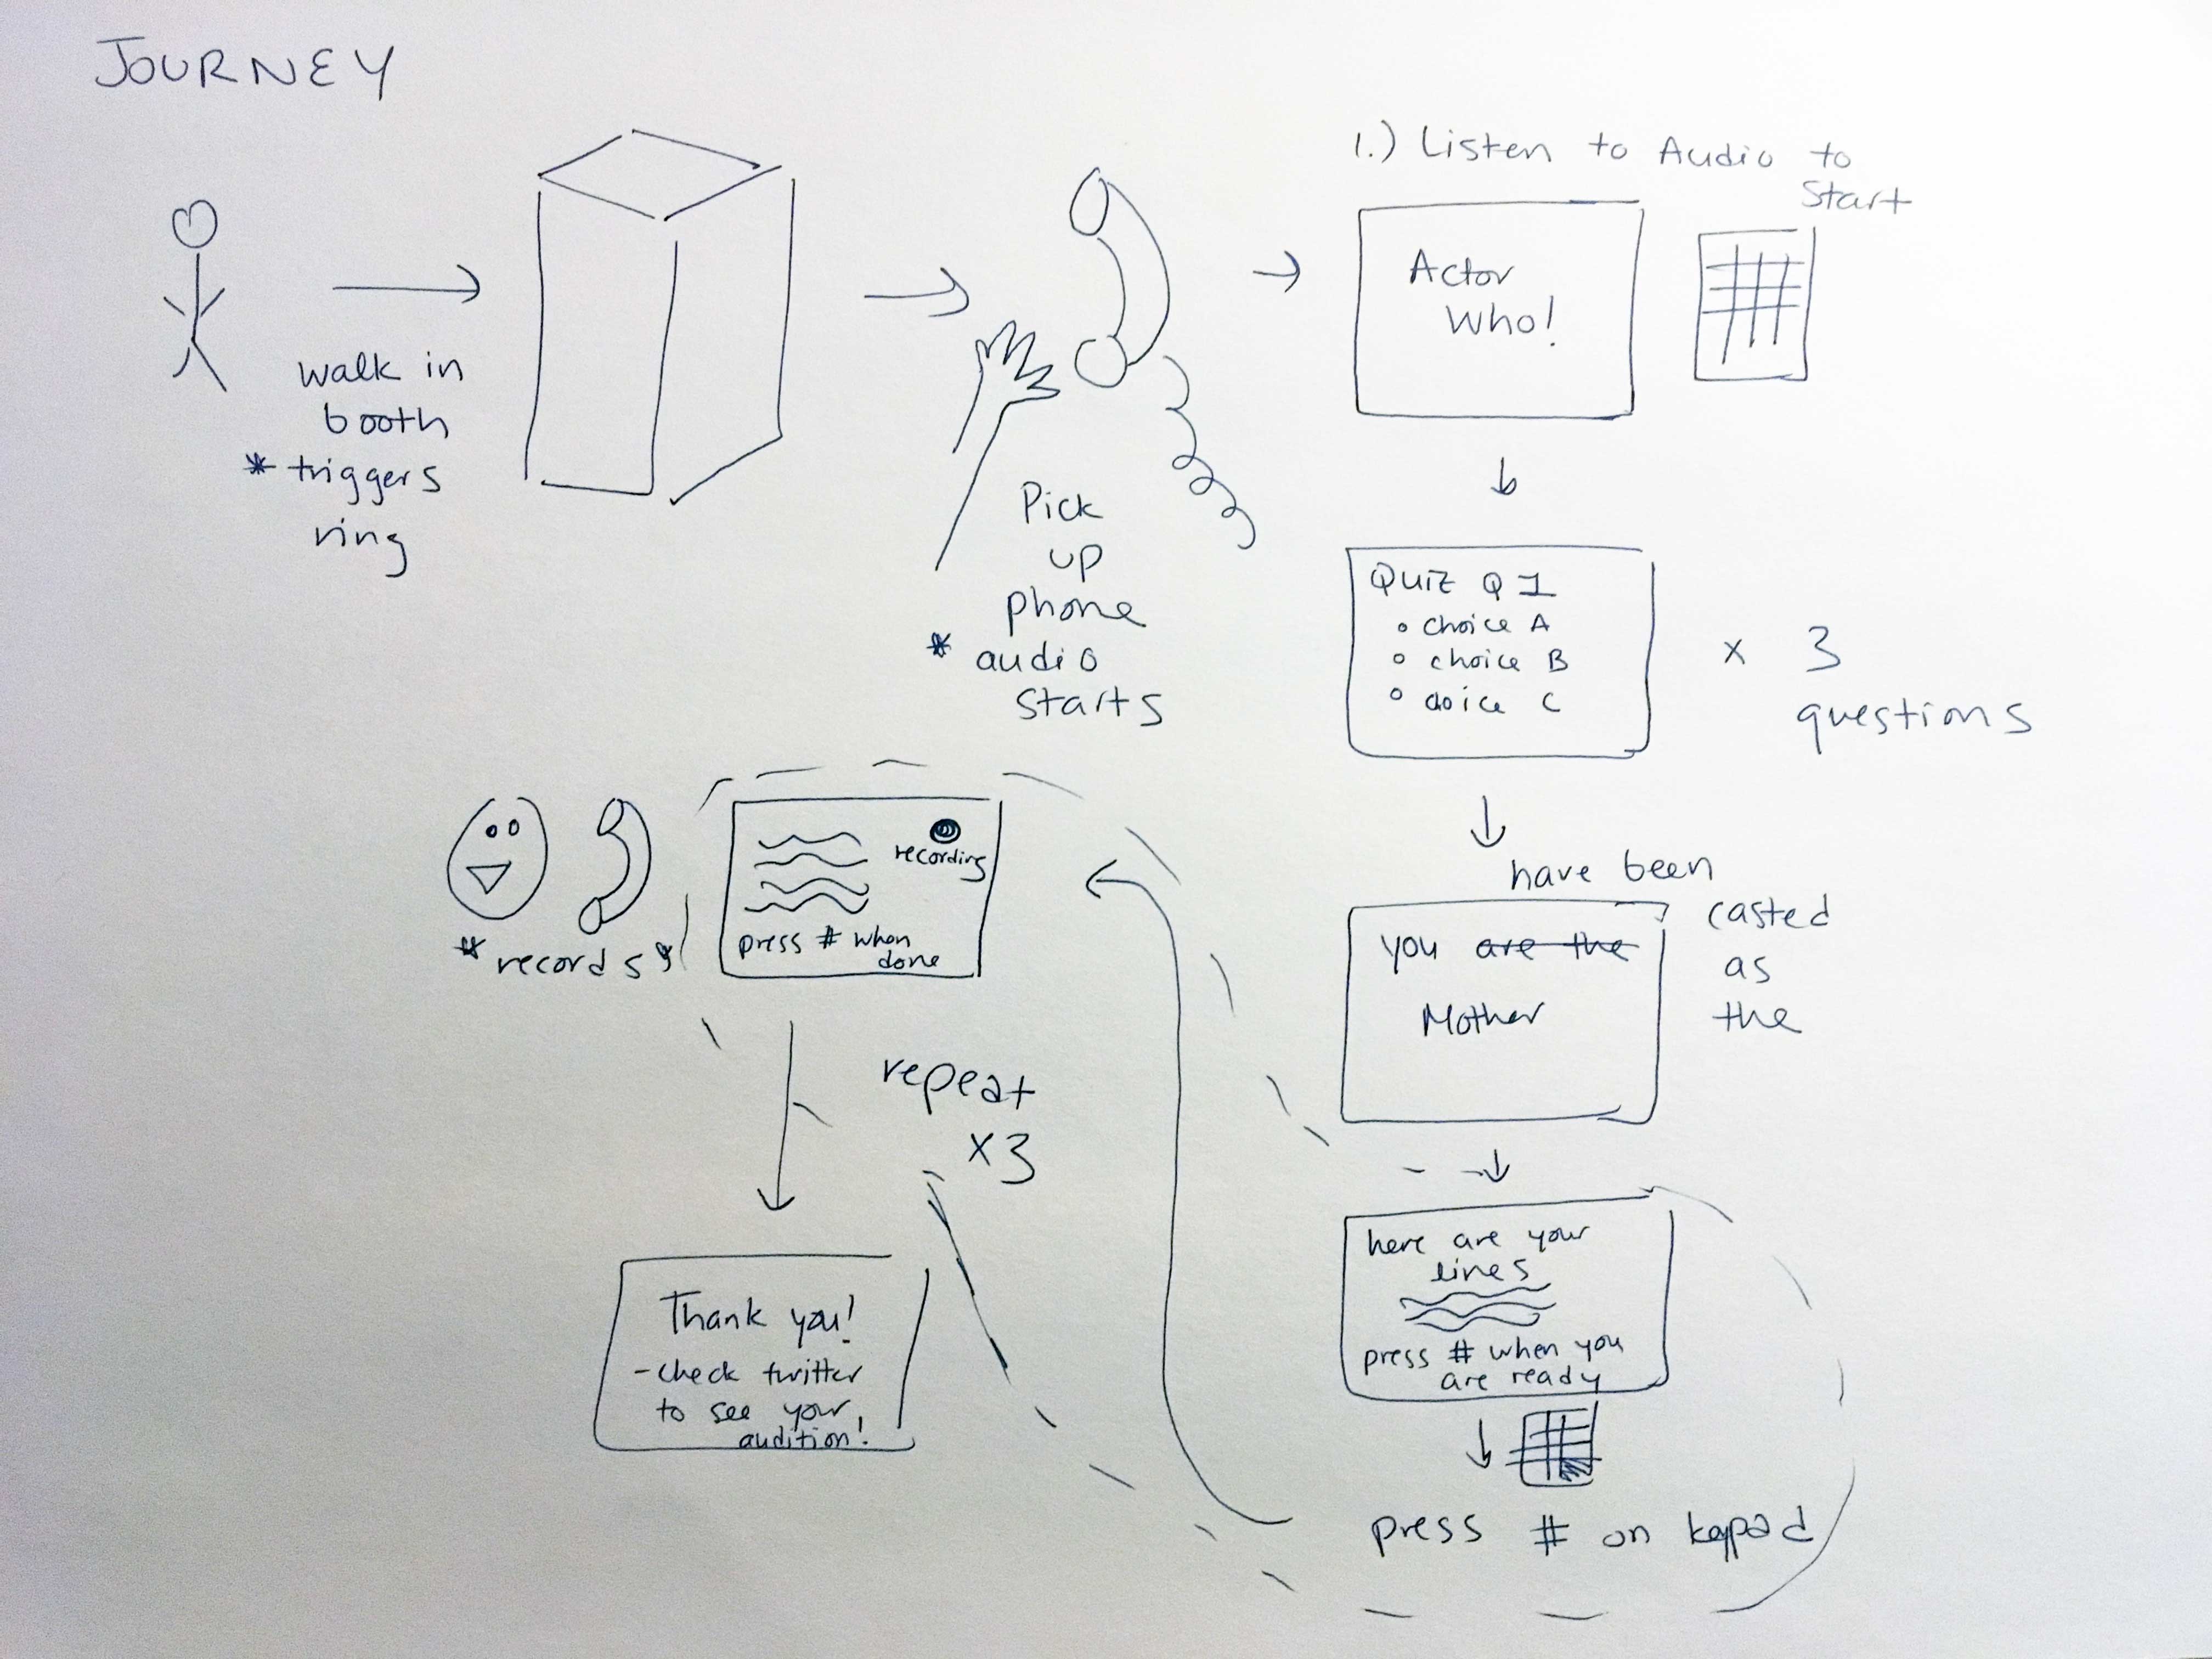 JOURNEY
walk in
booth
* triggers
ring
Pick
up
phone
* audio
starts
1.) Listen to Audio to
Start
Actor
Who!
Quiz Q 1
• choice A
• choice B
• choice C
x 3
questions
have been
casted
as
the
you are the
Mother
here are your
lines
press # when you
are ready
press # on keypad
recording
press # when
done
* records *
repeat
x3
Thank you!
- check twitter
to see your
audition!